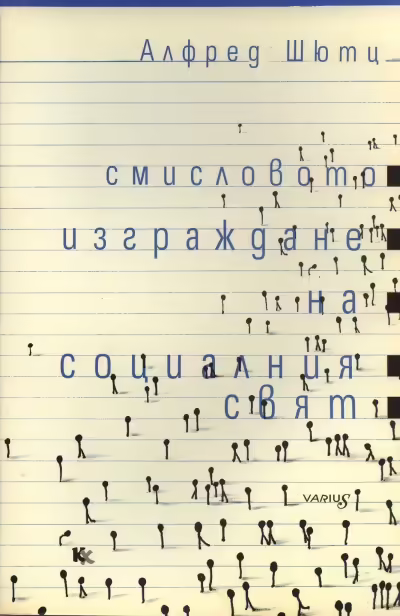 Алфред Шютц
смисловото
изграждане
на
социалния
свят
VARIUS
КХ